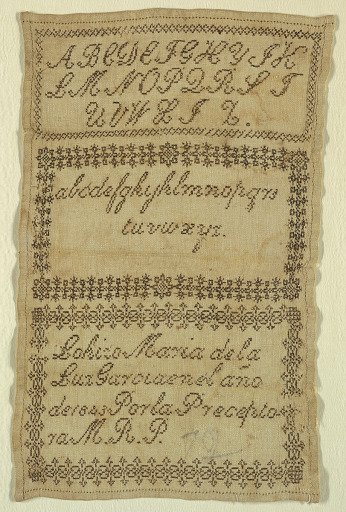 ABCDEFGHYJK
LMNOPQRST
UVWXYZ.
abcdefghyhlmnopqrs
tuvwxyz.
Lohizo Maria dela
Luz Garciaenel año
de1843 Porla Precepto
ra M. R. P.